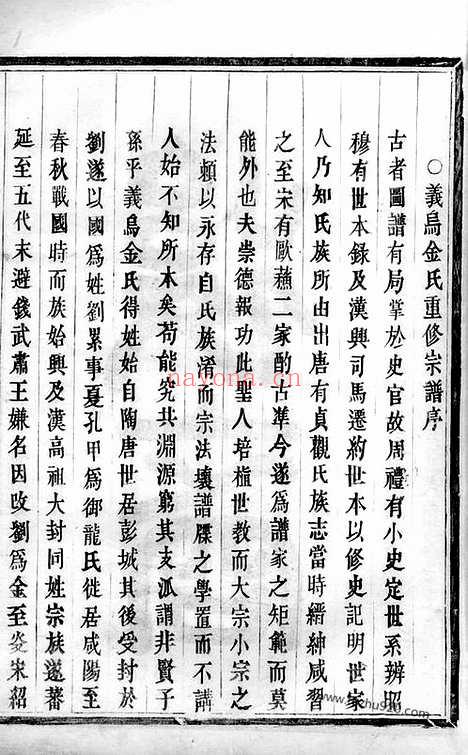 ○義烏金氏重修宗譜序
古者圖譜有局掌於史官故周禮有小史定世系辨昭
穆有世本錄及漢興司馬遷約世本以修史記明世家
人乃知氏族所由出唐有貞觀氏族志當時縉紳咸習
之至宋有歐蘓二家酌古準今遂爲譜家之矩範而莫
能外也夫崇德報功此聖人培植世教而大宗小宗之
法頼以永存自氏族淆而宗法壞譜牒之學置而不講
人始不知所本矣苟能究其淵源窮其支泒謂非賢子
孫乎義烏金氏得姓始自陶唐世居彭城其後受封於
劉遂以國爲姓劉累事夏孔甲爲御龍氏徙居咸陽至
春秋戰國時而族始興及漢高祖大封同姓宗族遂蕃
延至五代末避錢武肅王嫌名因改劉爲金至炎宋紹
nayona.cn